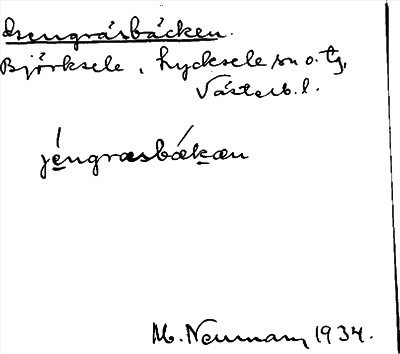 Isengräsbäcken.
Björksele, Lycksele sn o. tg,
Västerb. l.
jéngræsbækæn
M. Neuman, 1934.